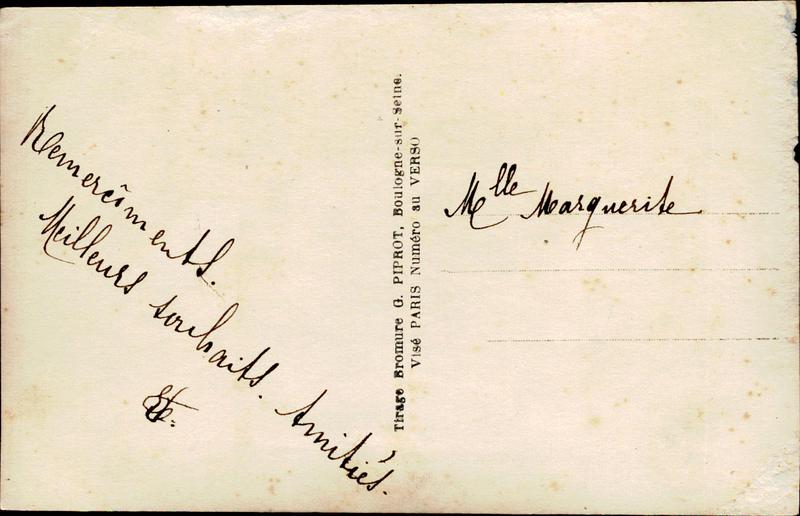 Remercîments.
Meilleurs souhaits. Amitiés.
Tirage Bromure G. PIPROT, Boulogne-sur-Seine.
Visé PARIS Numéro au VERSO
Mlle Marguerite